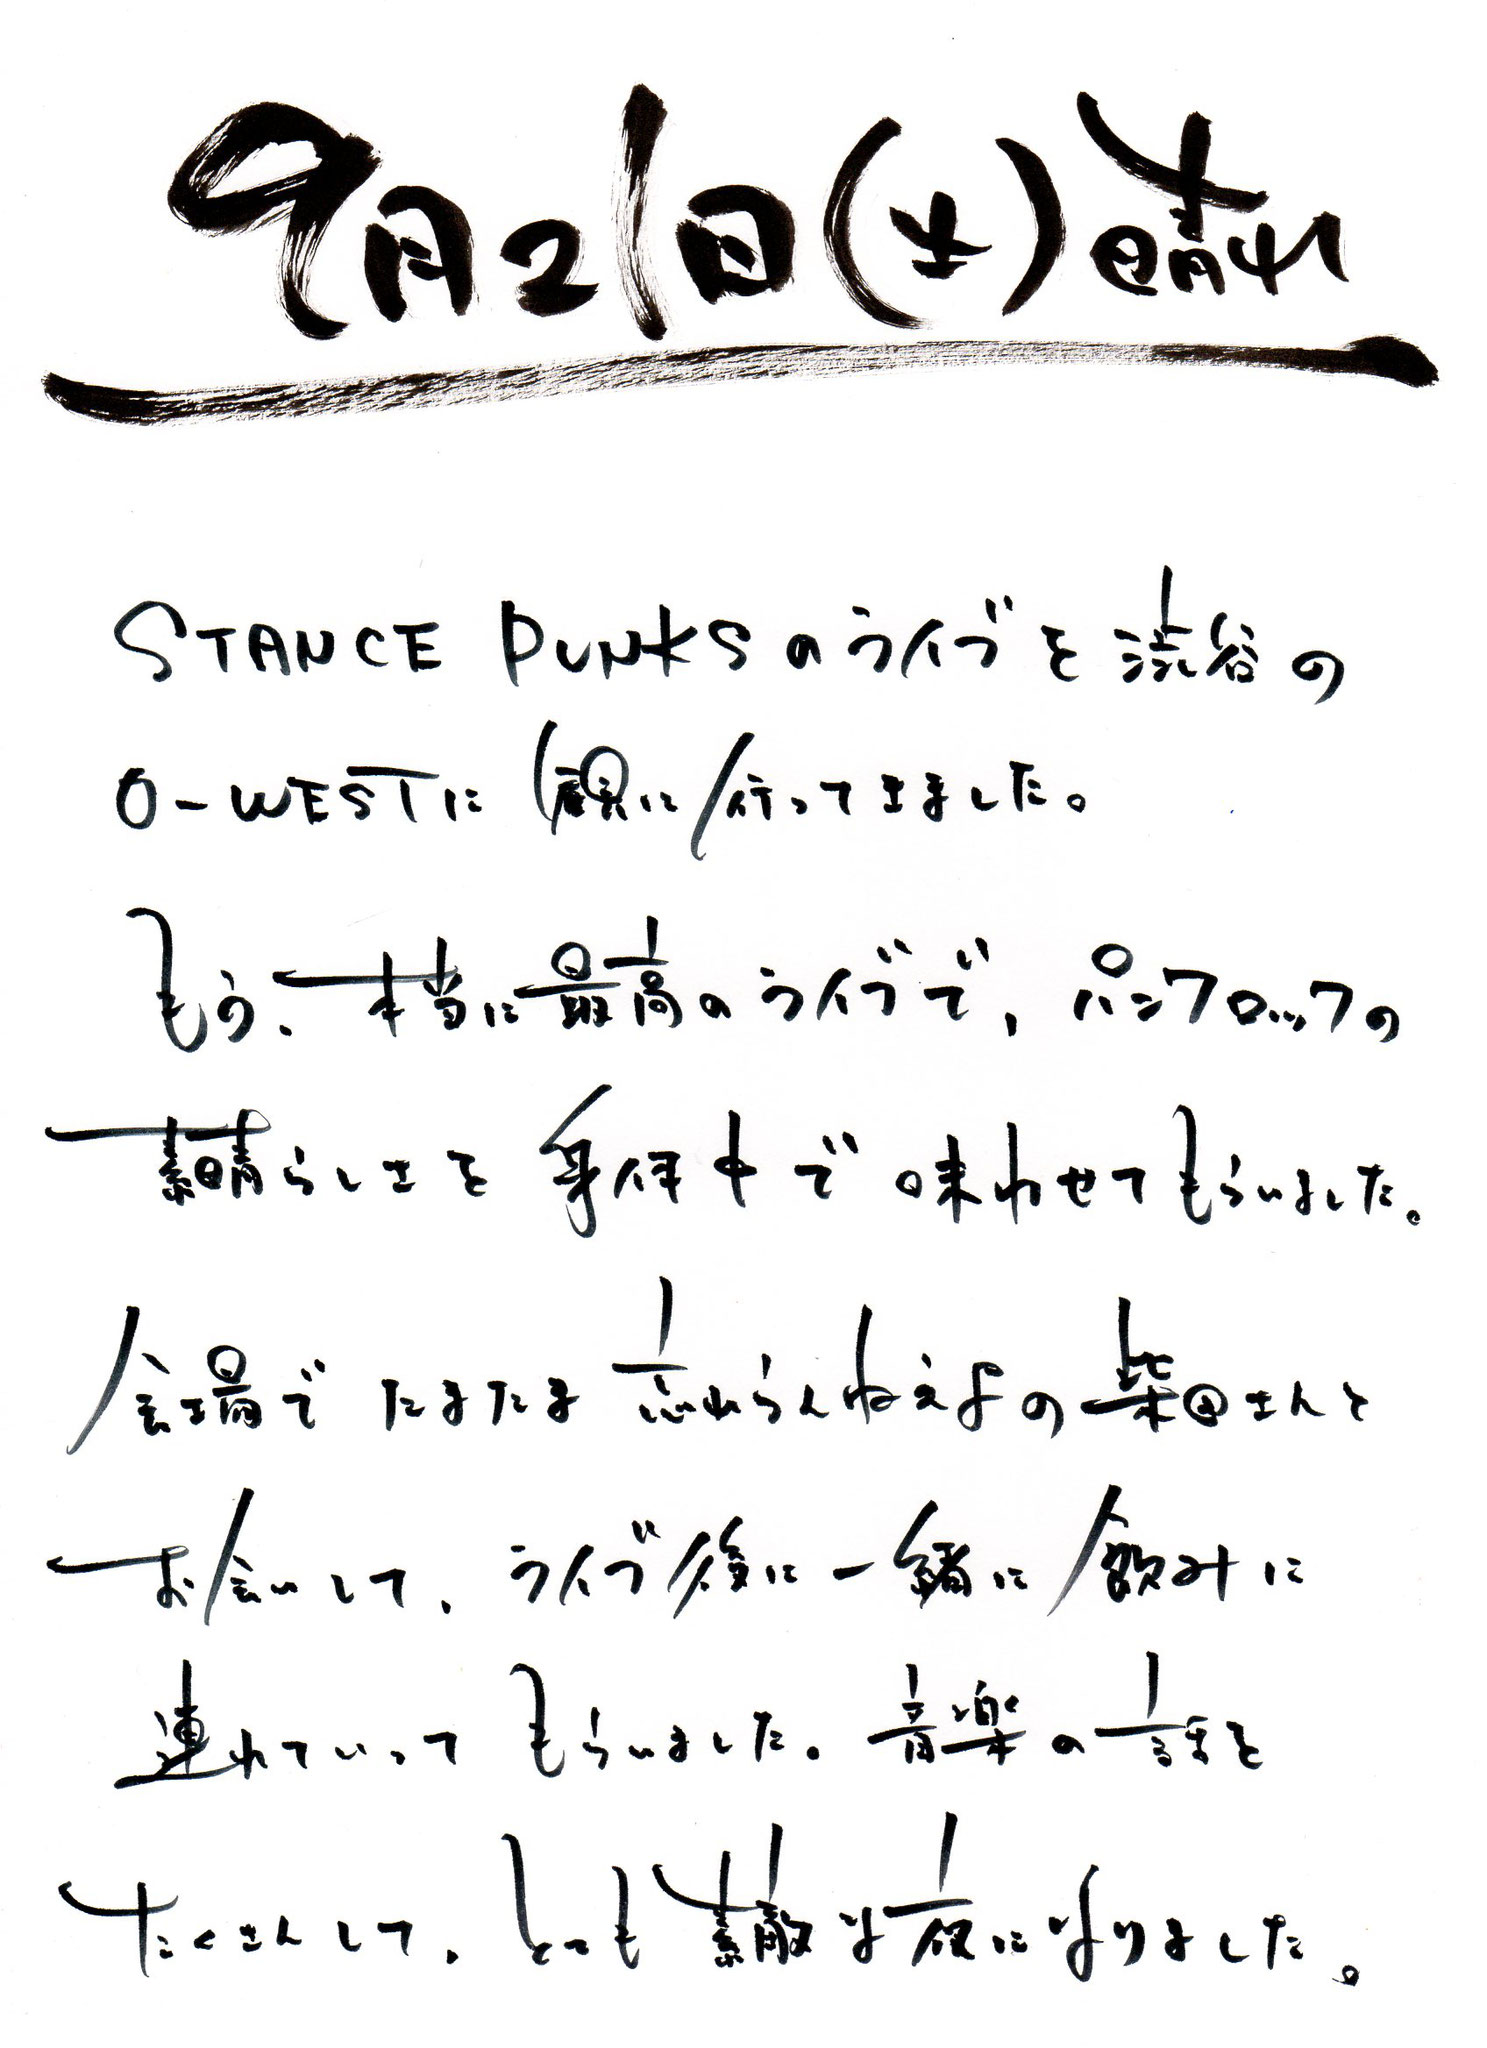 9月21日(土)晴れ
STANCE PUNKSのライブを渋谷の
O-WESTに観に行ってきました。
もう、本当に最高のライブで、パンクロックの
素晴らしさを身体中で味わせてもらいました。
会場でたまたま忘れらんねえよの柴田さんと
お会いして、ライブ後に一緒に飲みに
連れていってもらいました。音楽の話を
たくさんして、とても素敵な夜になりました。